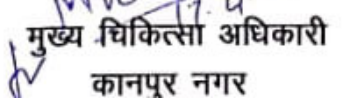 मुख्य चिकित्सा अधिकारी
कानपुर नगर